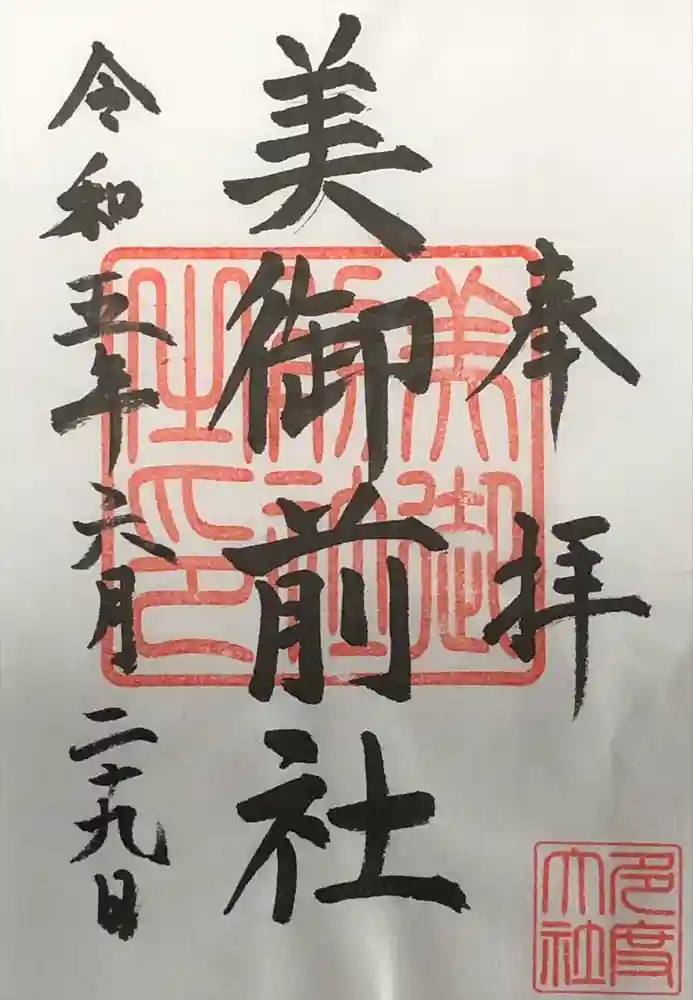 奉拝
美御前社
令和五年六月二十九日
美御前社之印
多度大社